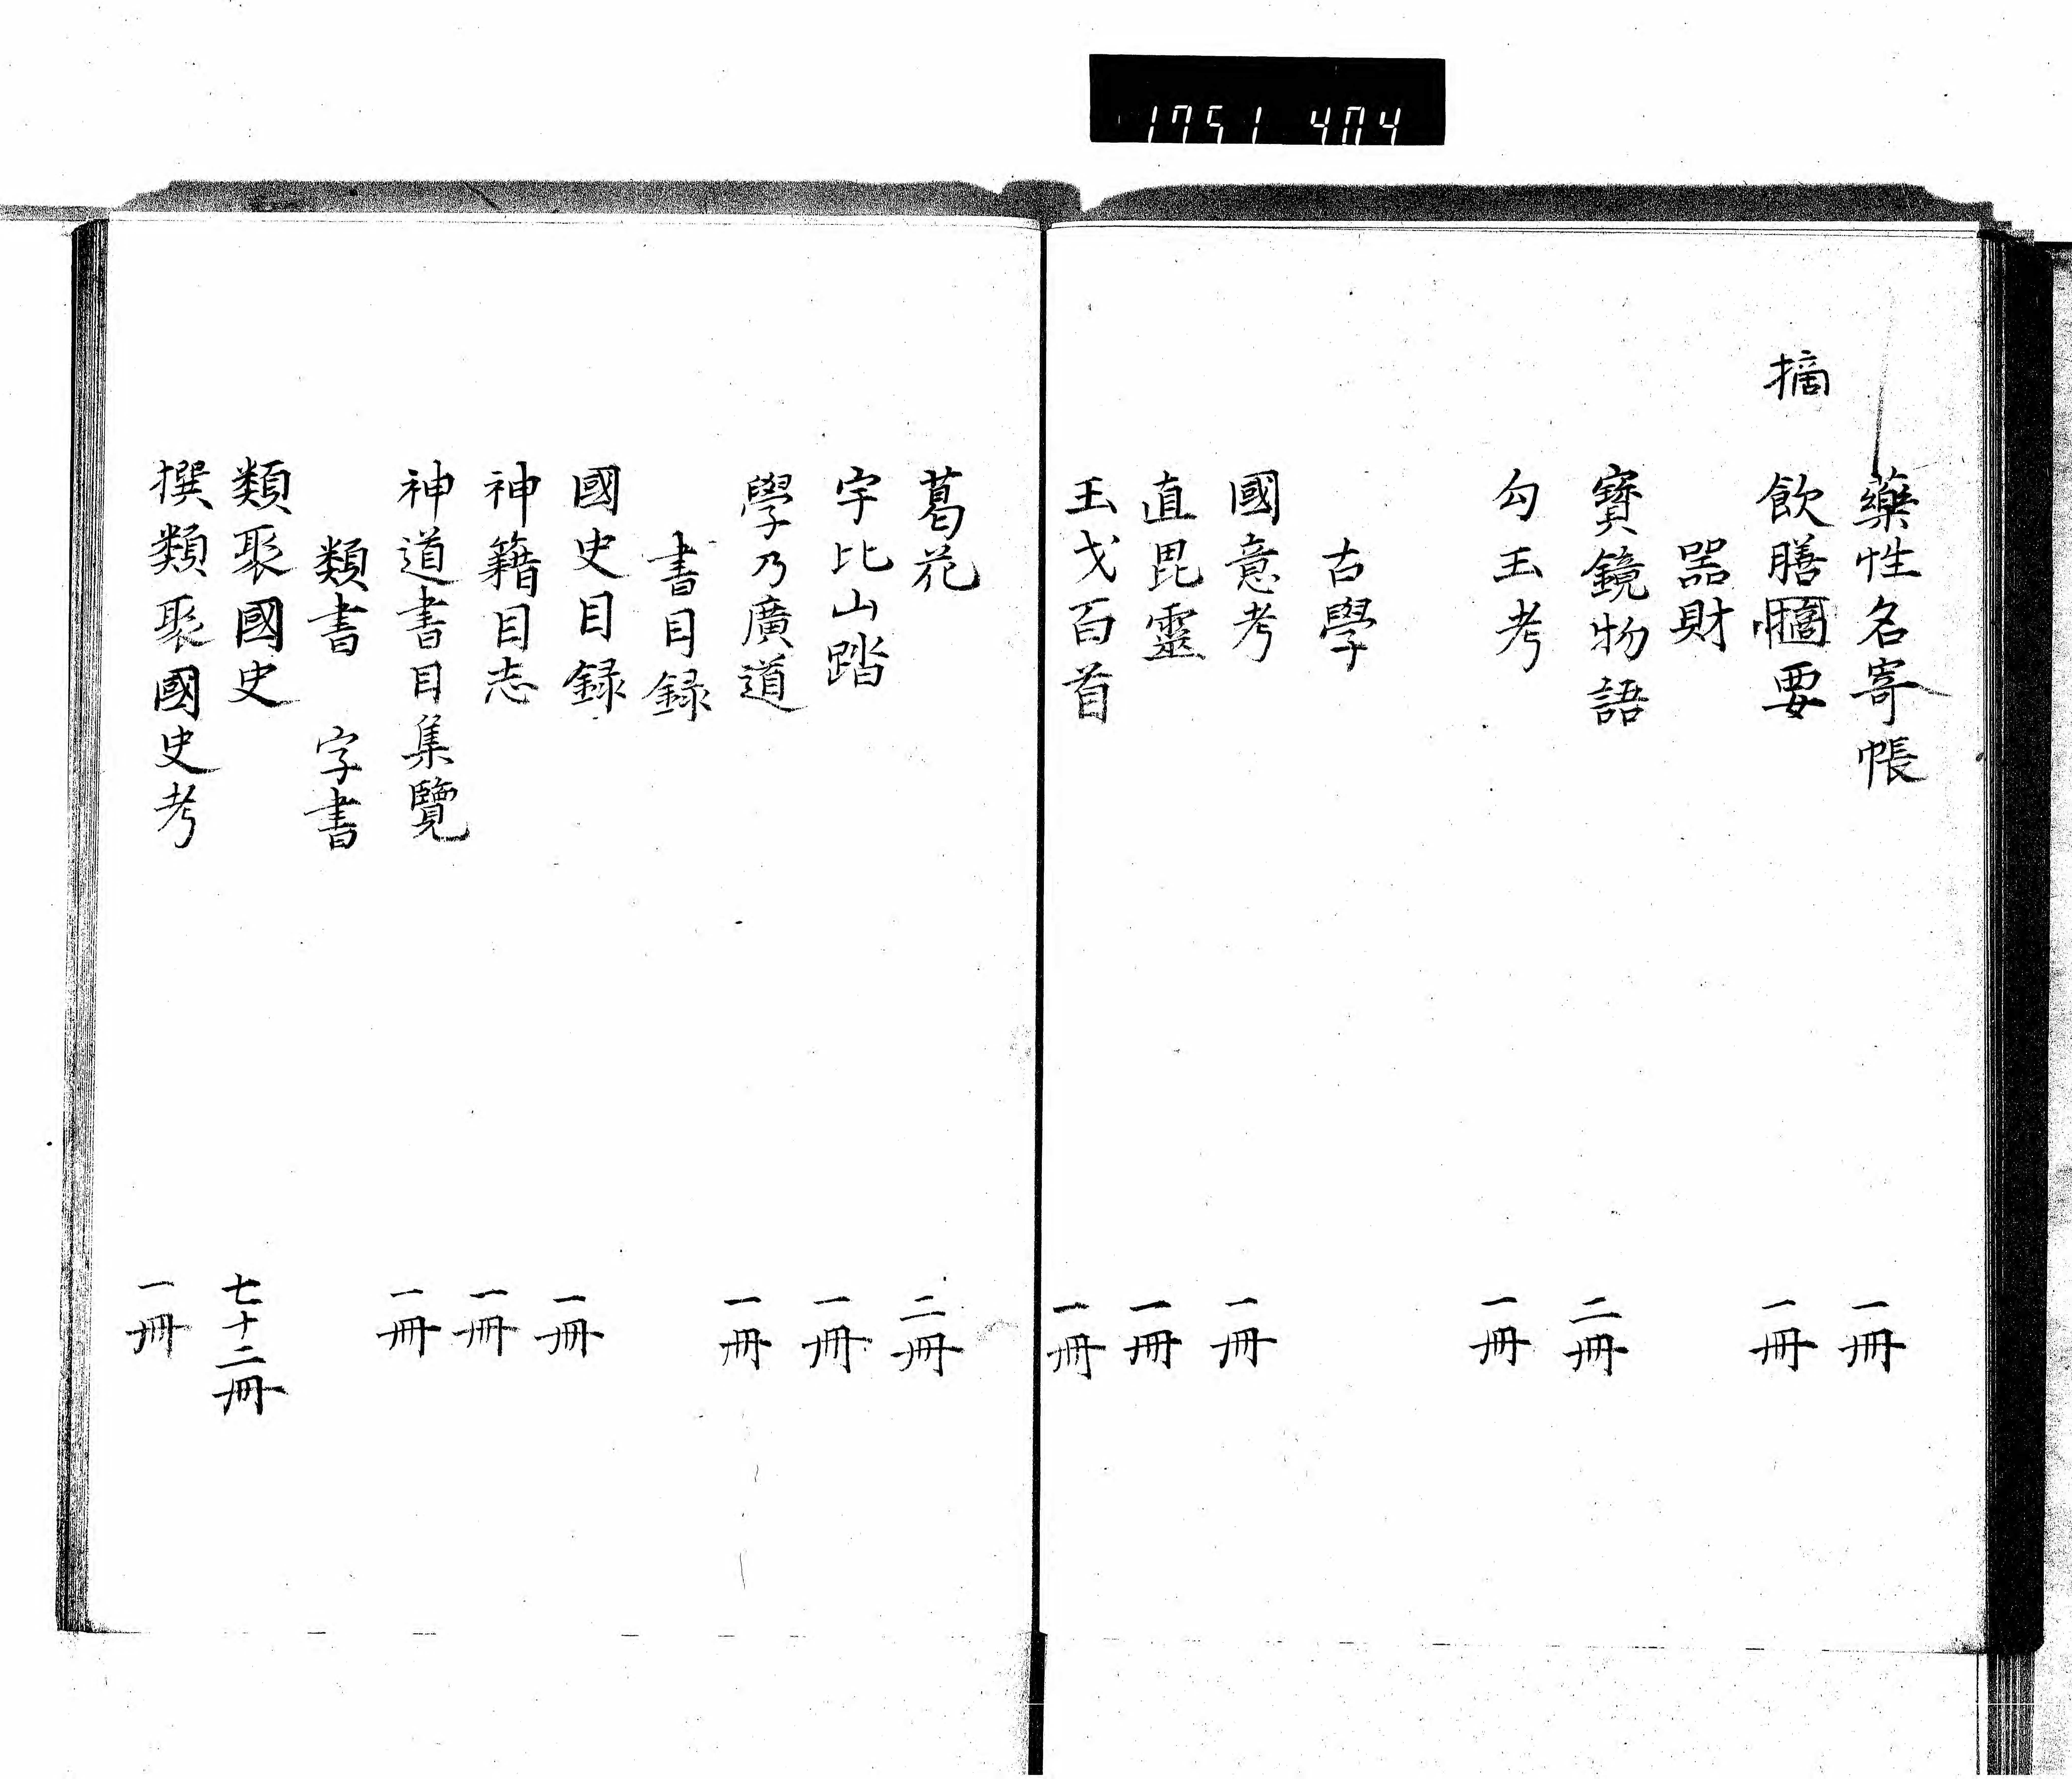 1751 404
藥性名寄帳 一冊
摘
飲膳摘要 一冊
器財
寶鏡物語 二冊
勾玉考 一冊
古學
國意考 一冊
直毘靈 一冊
玉戈百首 一冊
葛花 二冊
宇比山踏 一冊
學乃廣道 一冊
書目録
國史目録 一冊
神籍目志 一冊
神道書目集覽 一冊
類書 字書
類聚國史 七十二冊
撰類聚國史考 一冊